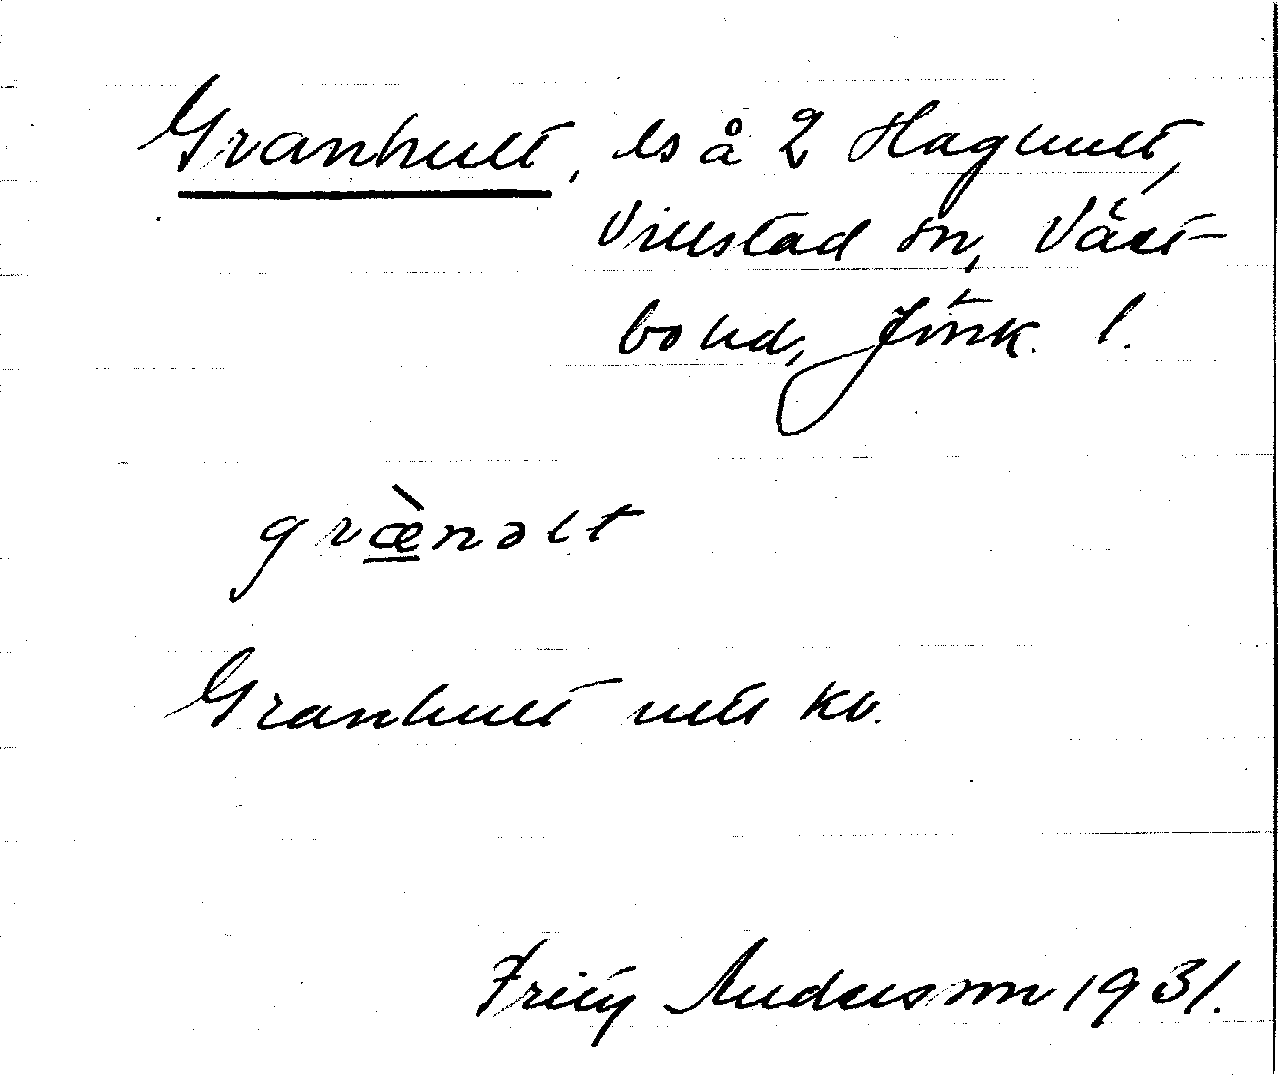 Granhult, ls å 2 Haghult,
Villstad sn, Väst-
bo hd, Jönk. l.
græ̀nəlt
Granhult utt kv.
Fritz Anderson 1931.